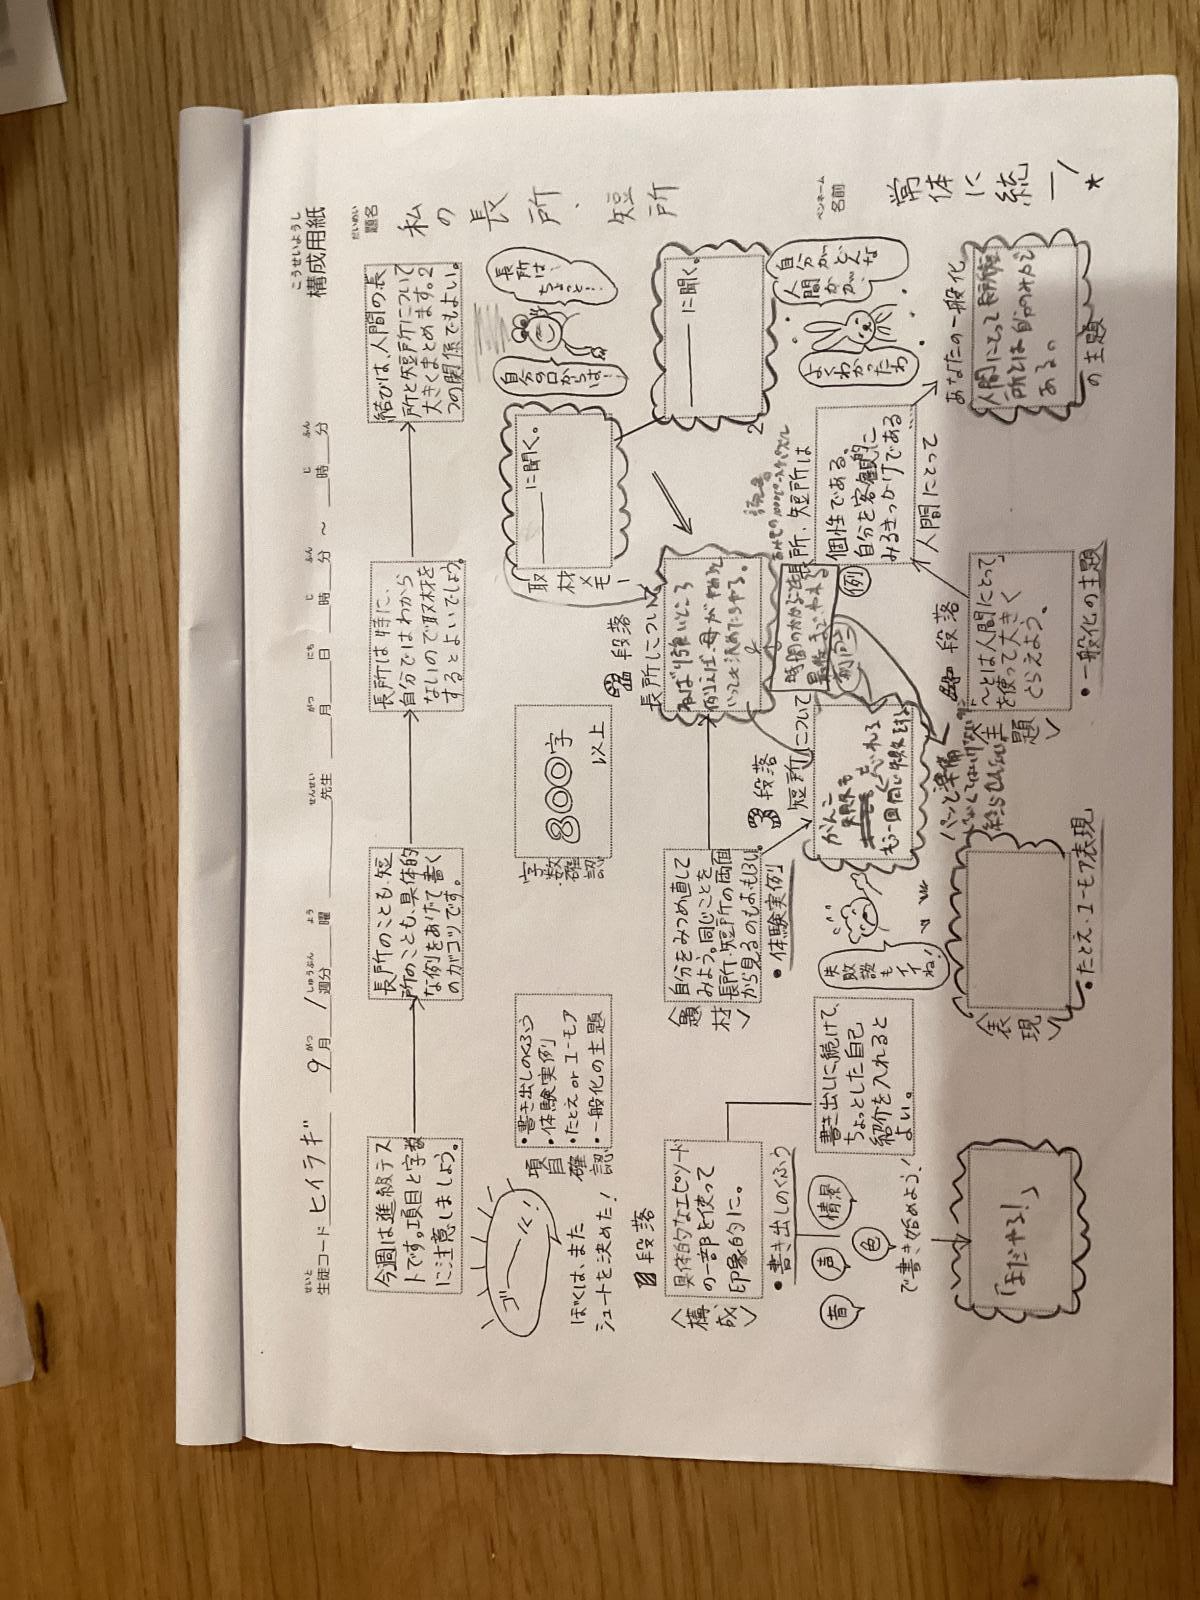 構成用紙
こうせいようし
生徒コード ヒイラギ 9月/週分 曜 先生 月 日 時 分 ～ 時 分
せいと がつ しゅうぶん よう せんせい がつ にち じ ふん じ ふん
題名
だいめい
私の長所、短所
ペンネーム
名前
常体に統一!*
今週は進級テス
トです。項目と字数
に注意しましょう。
長所のことも、短
所のことも、具体的
な例をあげて書く
のがコツです。
長所は特に、
自分ではわから
ないので取材を
するとよいでしょう。
結びは、人間の長
所と短所について
大きくまとめます。2
つの関係でもよい。
ゴール!
ぼくは、また
シュートを決めた!
項目確認
・書き出しのくふう
・体験実例
・たとえorユーモア
・一般化の主題
字数確認
800字
以上
取材メモ!
に聞く。
自分の口からは!
長所は!
ちょっと!
に聞く。
自分がどんな
人間かが、
よくわかったわ
段落
〈構成〉
具体的なエピソード
の一部を使って
印象的に。
・書き出しのくふう
音
声
情景
色
で書き始めよう!
「まだやる!」
書き出しに続けて、
ちょっとした自己
紹介を入れると
よい。
〈題材〉
自分をみつめ直して
みよう。同じことを
長所・短所の両面
から見るのもおもしろい。
・体験実例
失敗談も
イイね!
〈表現〉
・たとえ・ユーモア表現
段落
長所について
ねばり強いところ
例えば、母がやめな
段落
短所について
がんこ
もう一回同じ失敗をする
長所、短所は
(例)
個性である。
自分を客観的に
みるきっかけである
人間にとって
段落
〈主題〉
「～とは人間にとって」
を使って大きく
とらえよう。
・一般化の主題
あなたの一般化
の主題
人間にとって長所短
所とは
ある。